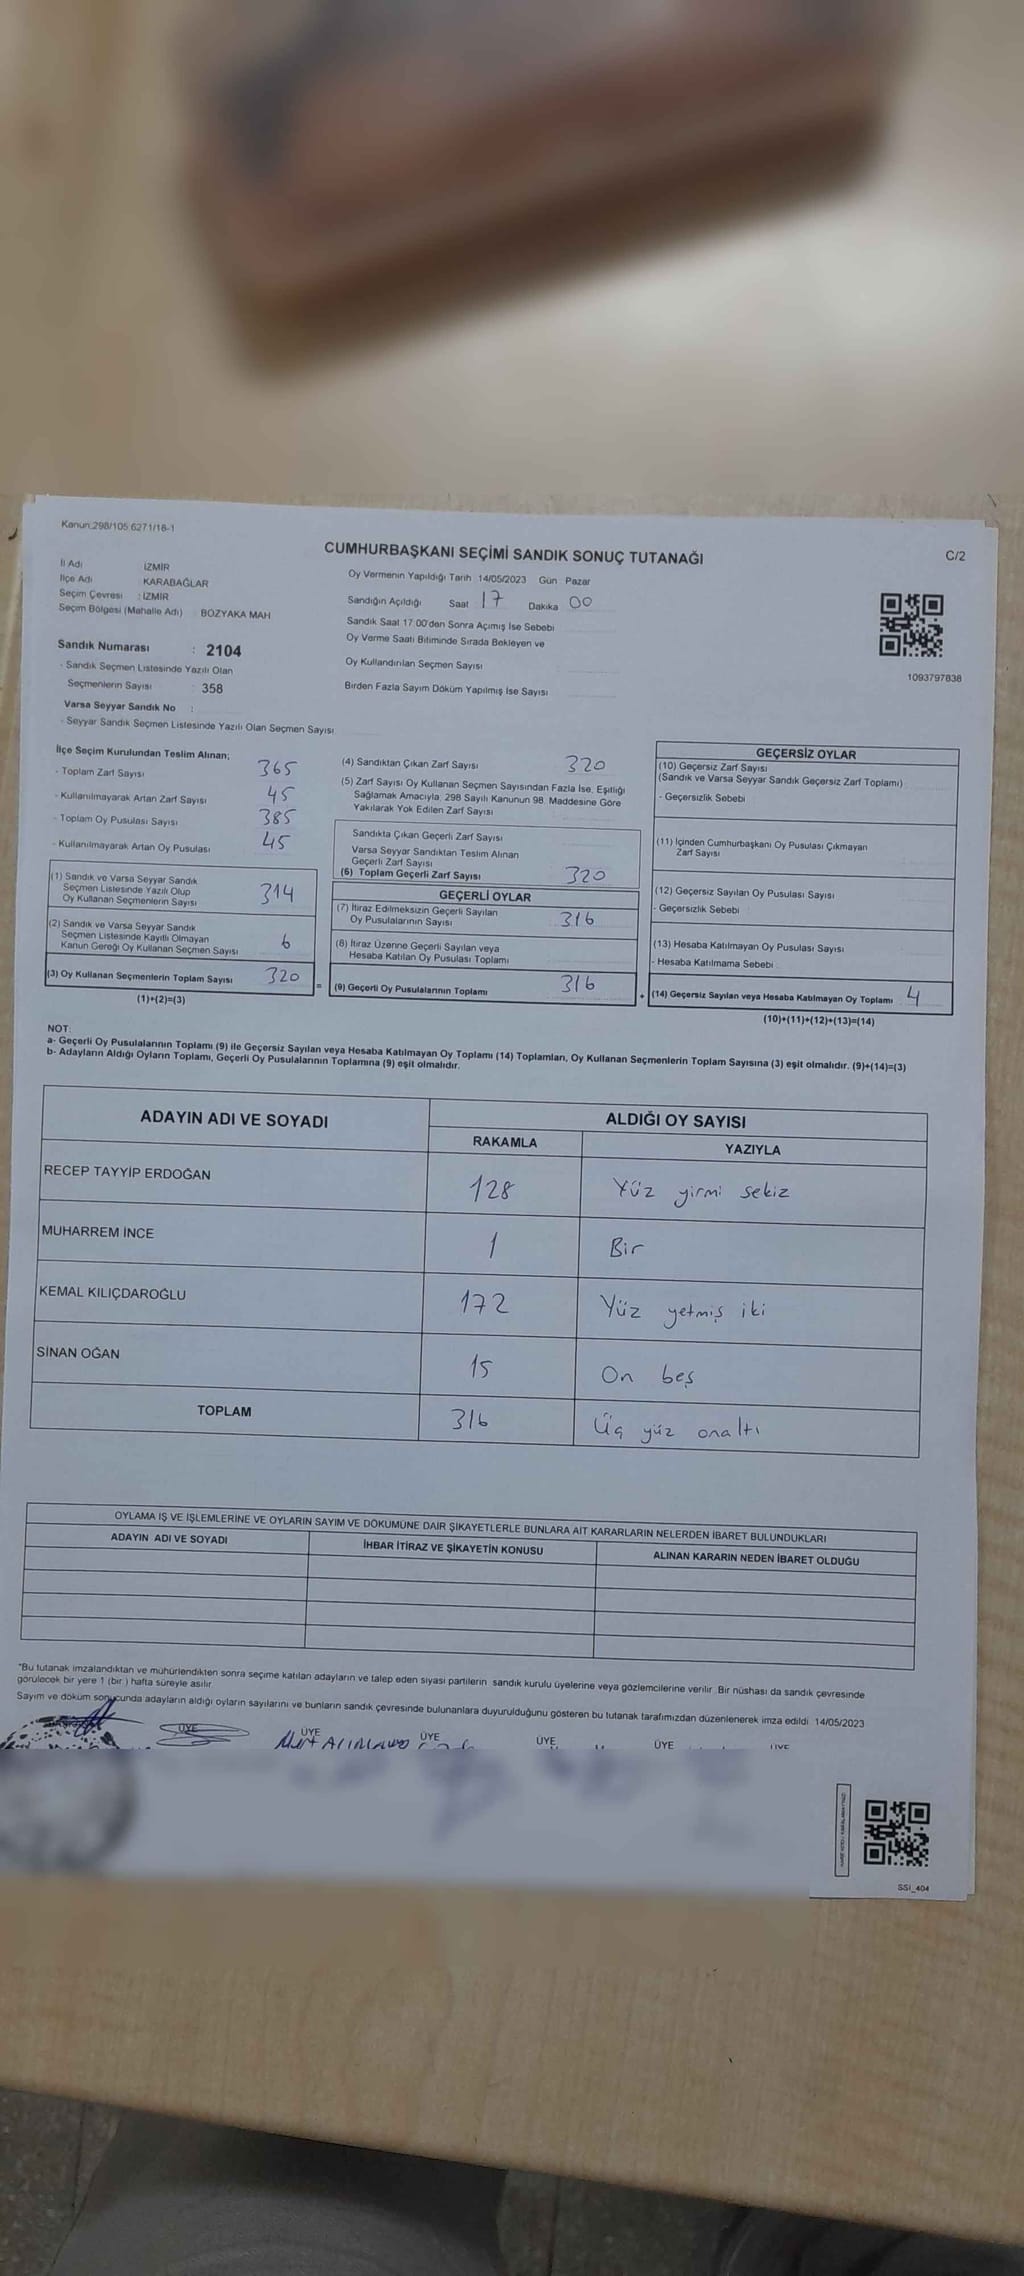 Kanun:298/105;6271/18-1
CUMHURBAŞKANI SEÇİMİ SANDIK SONUÇ TUTANAĞI
C/2
İl Adı İZMİR
İlçe Adı KARABAĞLAR
Seçim Çevresi : İZMİR
Seçim Bölgesi (Mahalle Adı) BOZYAKA MAH
Oy Vermenin Yapıldığı Tarih 14/05/2023 Gün Pazar
Sandığın Açıldığı Saat 17 Dakika 00
Sandık Saat 17:00'den Sonra Açımış İse Sebebi
Oy Verme Saati Bitiminde Sırada Bekleyen ve
Oy Kullandırılan Seçmen Sayısı
Birden Fazla Sayım Döküm Yapılmış İse Sayısı
1093797838
Sandık Numarası : 2104
- Sandık Seçmen Listesinde Yazılı Olan
Seçmenlerin Sayısı 358
Varsa Seyyar Sandık No :
- Seyyar Sandık Seçmen Listesinde Yazılı Olan Seçmen Sayısı
İlçe Seçim Kurulundan Teslim Alınan;
- Toplam Zarf Sayısı 365
- Kullanılmayarak Artan Zarf Sayısı 45
- Toplam Oy Pusulası Sayısı 385
- Kullanılmayarak Artan Oy Pusulası 45
(1) Sandık ve Varsa Seyyar Sandık
Seçmen Listesinde Yazılı Olup
Oy Kullanan Seçmenlerin Sayısı 314
(2) Sandık ve Varsa Seyyar Sandık
Seçmen Listesinde Kayıtlı Olmayan
Kanun Gereği Oy Kullanan Seçmen Sayısı 6
(3) Oy Kullanan Seçmenlerin Toplam Sayısı 320
(1)+(2)=(3)
(4) Sandıktan Çıkan Zarf Sayısı 320
(5) Zarf Sayısı Oy Kullanan Seçmen Sayısından Fazla İse, Eşitliği
Sağlamak Amacıyla, 298 Sayılı Kanunun 98. Maddesine Göre
Yakılarak Yok Edilen Zarf Sayısı
Sandıkta Çıkan Geçerli Zarf Sayısı
Varsa Seyyar Sandıktan Teslim Alınan
Geçerli Zarf Sayısı
(6) Toplam Geçerli Zarf Sayısı 320
GEÇERLİ OYLAR
(7) İtiraz Edilmeksizin Geçerli Sayılan
Oy Pusulalarının Sayısı 316
(8) İtiraz Üzerine Geçerli Sayılan veya
Hesaba Katılan Oy Pusulası Toplamı
= (9) Geçerli Oy Pusulalarının Toplamı 316
GEÇERSİZ OYLAR
(10) Geçersiz Zarf Sayısı
(Sandık ve Varsa Seyyar Sandık Geçersiz Zarf Toplamı)
- Geçersizlik Sebebi
(11) İçinden Cumhurbaşkanı Oy Pusulası Çıkmayan
Zarf Sayısı
(12) Geçersiz Sayılan Oy Pusulası Sayısı
- Geçersizlik Sebebi
(13) Hesaba Katılmayan Oy Pusulası Sayısı
- Hesaba Katılmama Sebebi
+ (14) Geçersiz Sayılan veya Hesaba Katılmayan Oy Toplamı 4
(10)+(11)+(12)+(13)=(14)
NOT:
a- Geçerli Oy Pusulalarının Toplamı (9) ile Geçersiz Sayılan veya Hesaba Katılmayan Oy Toplamı (14) Toplamları, Oy Kullanan Seçmenlerin Toplam Sayısına (3) eşit olmalıdır. (9)+(14)=(3)
b- Adayların Aldığı Oyların Toplamı, Geçerli Oy Pusulalarının Toplamına (9) eşit olmalıdır.
ADAYIN ADI VE SOYADI ALDIĞI OY SAYISI
RAKAMLA YAZIYLA
RECEP TAYYİP ERDOĞAN 128 Yüz yirmi sekiz
MUHARREM İNCE 1 Bir
KEMAL KILIÇDAROĞLU 172 Yüz yetmiş iki
SİNAN OĞAN 15 On beş
TOPLAM 316 Üç yüz onaltı
OYLAMA İŞ VE İŞLEMLERİNE VE OYLARIN SAYIM VE DÖKÜMÜNE DAİR ŞİKAYETLERLE BUNLARA AİT KARARLARIN NELERDEN İBARET BULUNDUKLARI
ADAYIN ADI VE SOYADI İHBAR İTİRAZ VE ŞİKAYETİN KONUSU ALINAN KARARIN NEDEN İBARET OLDUĞU
*Bu tutanak imzalandıktan ve mühürlendikten sonra seçime katılan adayların ve talep eden siyasi partilerin sandık kurulu üyelerine veya gözlemcilerine verilir. Bir nüshası da sandık çevresinde
görülecek bir yere 1 (bir ) hafta süreyle asılır.
Sayım ve döküm sonucunda adayların aldığı oyların sayılarını ve bunların sandık çevresinde bulunanlara duyurulduğunu gösteren bu tutanak tarafımızdan düzenlenerek imza edildi 14/05/2023
ÜYE ÜYE ÜYE ÜYE ÜYE ÜYE
SSI_404